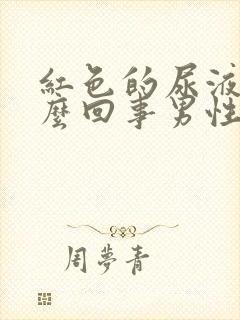 紅色的尿液
麼回事男性
周夢青